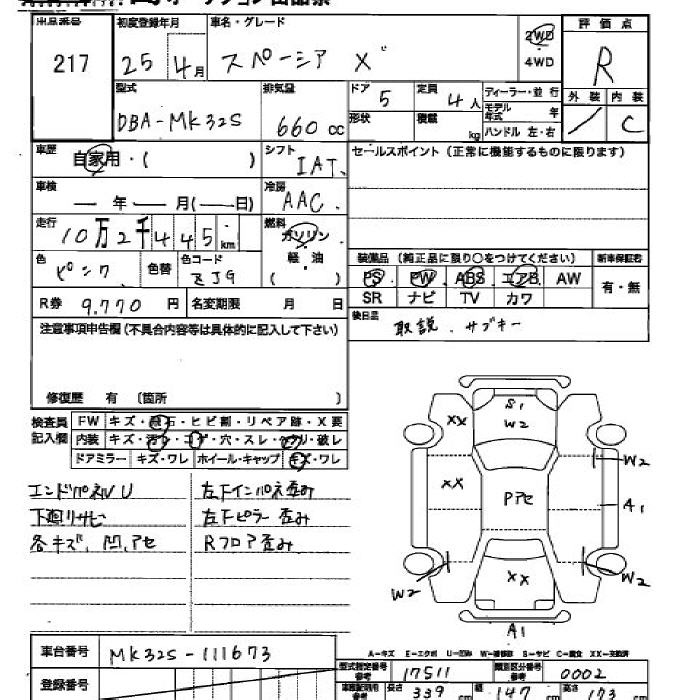 出品番号 初度登録年月 車名・グレード 2WD 評価点
217 25 4月 スペーシア X 4WD R
型式 排気量 ドア 5 定員 4人 ディーラー・並行 外装 内装
DBA-MK32S 660cc 形状 積載 kg モデル年式 年 ハンドル 左・右 / C
車歴 自家用・( ) シフト IAT セールスポイント (正常に機能するものに限ります)
車検 ― 年 ― 月(―日) 冷房 AAC
走行 10万2千445km 燃料 ガソリン 軽油 ( )
色 ピンク 色替 色コード ZJ9 装備品 (純正品に限り○をつけてください) 新車保証書
PS PW ABS エアB AW 有・無
R券 9,770円 名変期限 月 日 SR ナビ TV カワ
注意事項申告欄(不具合内容等は具体的に記入して下さい) 後日品 取説.サブキー
修復歴 有 〔箇所 〕
検査員記入欄 FW キズ・飛石・ヒビ割・リペア跡・X要
内装 キズ・汚レ・コゲ・穴・スレ・メクリ・破レ
ドアミラー キズ・ワレ ホイール・キャップ キズ・ワレ
S1
W2
XX
W2
XX
Pアセ
A1
XX
W2
W2
A1
エンドパネルU 左下インパネ歪み
下廻りサビ 左下ピラー歪み
各キズ、凹、アセ Rフロア歪み
A-キズ E-エクボ U-凹み W-補修跡 S-サビ C-腐食 XX-交換済
車台番号 MK32S-111673
型式指定番号 参考 17511 類別区分番号 参考 0002
登録番号 参考 長さ 339 cm 幅 147 cm 高さ 173 cm